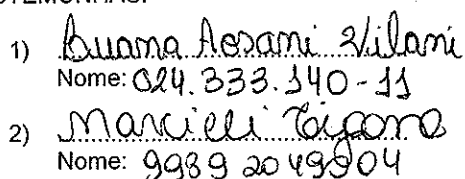 TESTEMUNHAS:
1) Buana Rosani Vilani
Nome: 024.333.140-11
2) Marcieli Tigono
Nome: 99892049904